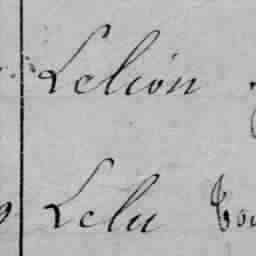 Lelión
Lelu